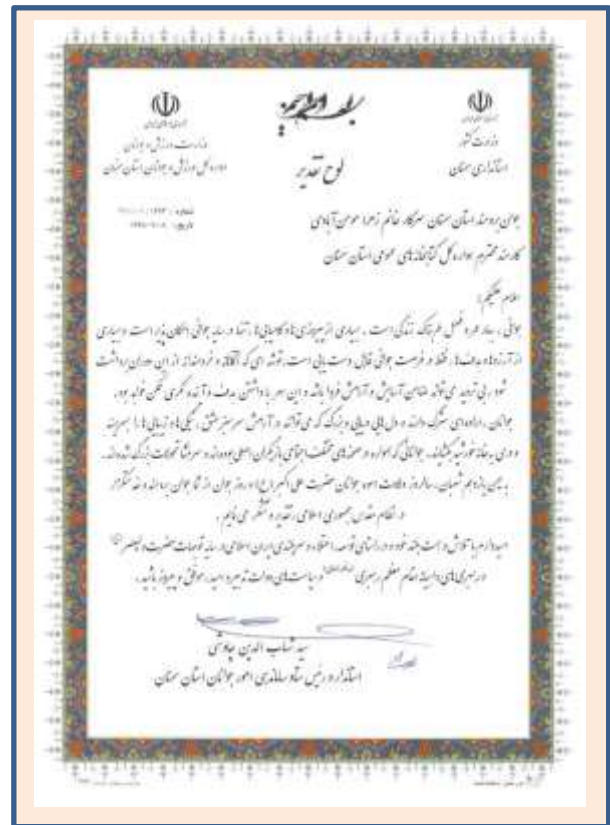 وزارت کشور
استانداری سمنان
وزارت ورزش و جوانان
اداره کل ورزش و جوانان استان سمنان
لوح تقدیر
جوان برومند استان سمنان سرکار خانم زهرا مومن آبادی
کارمند محترم اداره کل کتابخانه های عمومی استان سمنان
سلام علیکم؛
جوانی، بهار عمر و فصل طربناک زندگی است. بسیاری از پیروزی ها و کامیابی ها، تنها در سایه جوانی امکان پذیر است و بسیاری
از آرزوها و هدف ها، فقط در فرصت جوانی قابل دست یابی است. توشه ای که آگاهانه و خردمندانه از این دوران برداشت
شود، بی تردید می تواند ضامن آسایش و آرامش فردا باشد و این مهم با داشتن هدف و آینده نگری ممکن خواهد بود.
جوانان، اراده ای سترگ دارند و دل هایی دریایی و بزرگ که می توانند در آرامش سرسبز عشق، نیکی ها و زیبایی ها را بسرایند
و دری به خانه خورشید بگشایند. جوانانی که همواره در صحنه های مختلف اجتماعی بازیگران اصلی بوده اند و سرمنشا تحولات بزرگ شده اند.
بدین یازدهم شعبان، سالروز ولادت اسوه جوانان حضرت علی اکبر (ع) و روز جوان از شما جوان برومند و خدمتگزار
در نظام مقدس جمهوری اسلامی، تقدیر و تشکر می نمایم.
امیدوارم با تلاش و همت بلند خود در راستای توسعه، اعتلاء و سربلندی ایران اسلامی در سایه توجهات حضرت ولیعصر
و رهبری های داهیانه مقام معظم رهبری و سیاست های دولت تدبیر و امید، موفق و پیروز باشید.
سید شهاب الدین چاوشی
استاندار و رئیس ستاد ساماندهی امور جوانان استان سمنان